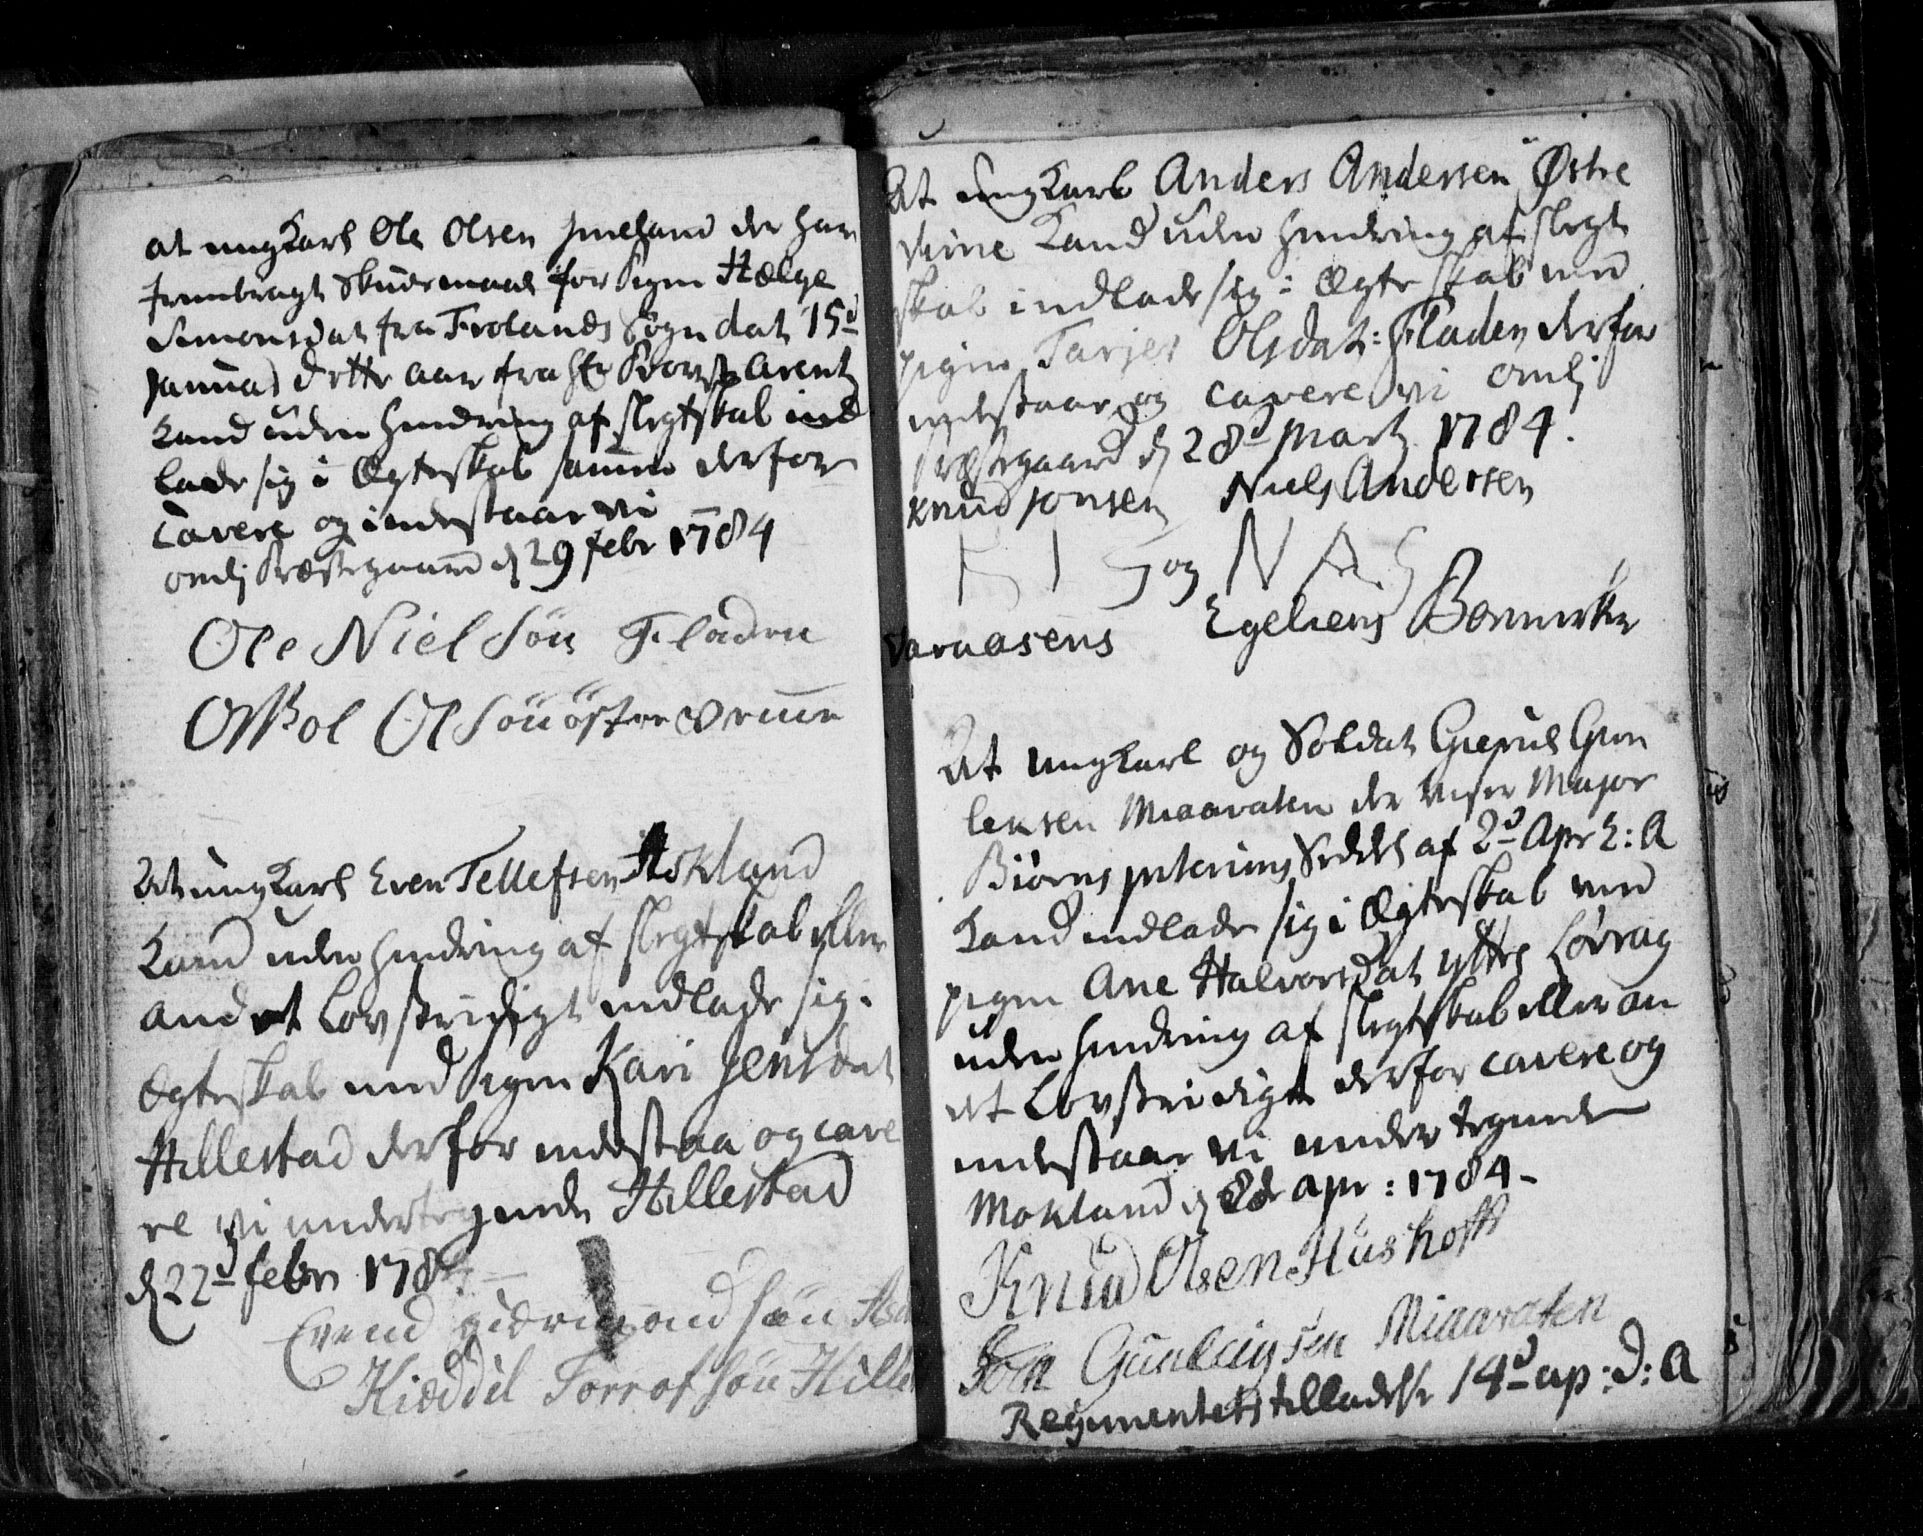 at ungkarl Ole Olsen der har
frembragt Skudsmaal for Pigen Hælge
Simonsdat fra Frolands Sogn dat 15d
Januar dette aar fra Hr Arentz
kand uden hindring af slegtskab ind
lade sig i Ægteskab sammen derfor
cavere og indestaar vi
omli Præstegaard d 29 febr 1784
Ole Niel Sön Fladen
Ol Sön öster
At ungkarl Even Tellefsen Askland
kand uden hindring af slegtskab eller
andet Lovstridigt indlade sig i
Ægteskab med Pigen Kari Jensdat
Hillestad derfor indestaa og cave
re vi undertegnede Hillestad
d 22d febr 178
Evend sön
Kieddil Torrof sön Hille
At ungkarl Anders Andersen Østre
Vime kand uden hindring af slegt
skab indlade sig i Ægteskab med
pigen Tarjer Olsdat: Fladen derfor
indestaar og cavere vi omli
Præstegaard d 28d Martz 1784.
Knud Jonsen Niels Andersen
K I S og N A S
Varaasens Egeliens Bomerker
At ungkarl og Soldat Giersul Gun
leksen Miaavaten der viser Major
Biørns interims Seddel af 2d Apr h: A
kand indlade sig i Ægteskab med
pigen Ane Halvorsdat yttre Løvrag
uden hindring af slegtskab eller an
det Lovstridigt derfor cavere og
indestaar vi undertegnede
Mokland d apr: 1784-
Knud Olsen Hüshoft
Gunleigsen Miaavaten
Regimentets tilladelse 14d ap: d: A